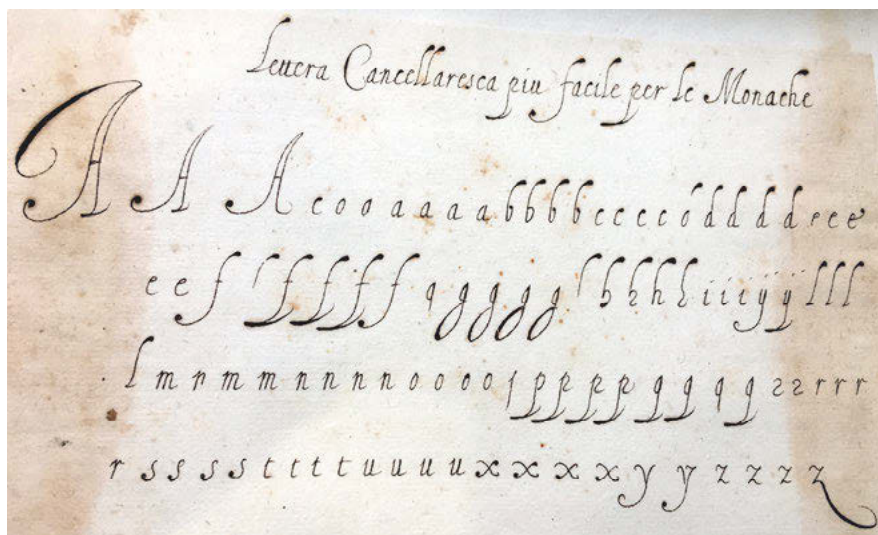 Lettera Cancellaresca piu facile per le Monache
A A A c o o a a a a b b b b c c c c o d d d d e e e
e e f l f f f f f q g g g g l h h h h i i i y y l l l
l m r m m n n n n o o o o j p p p p q q q q 2 2 r r r
r s s s s t t t t u u u u x x x x y y z z z z